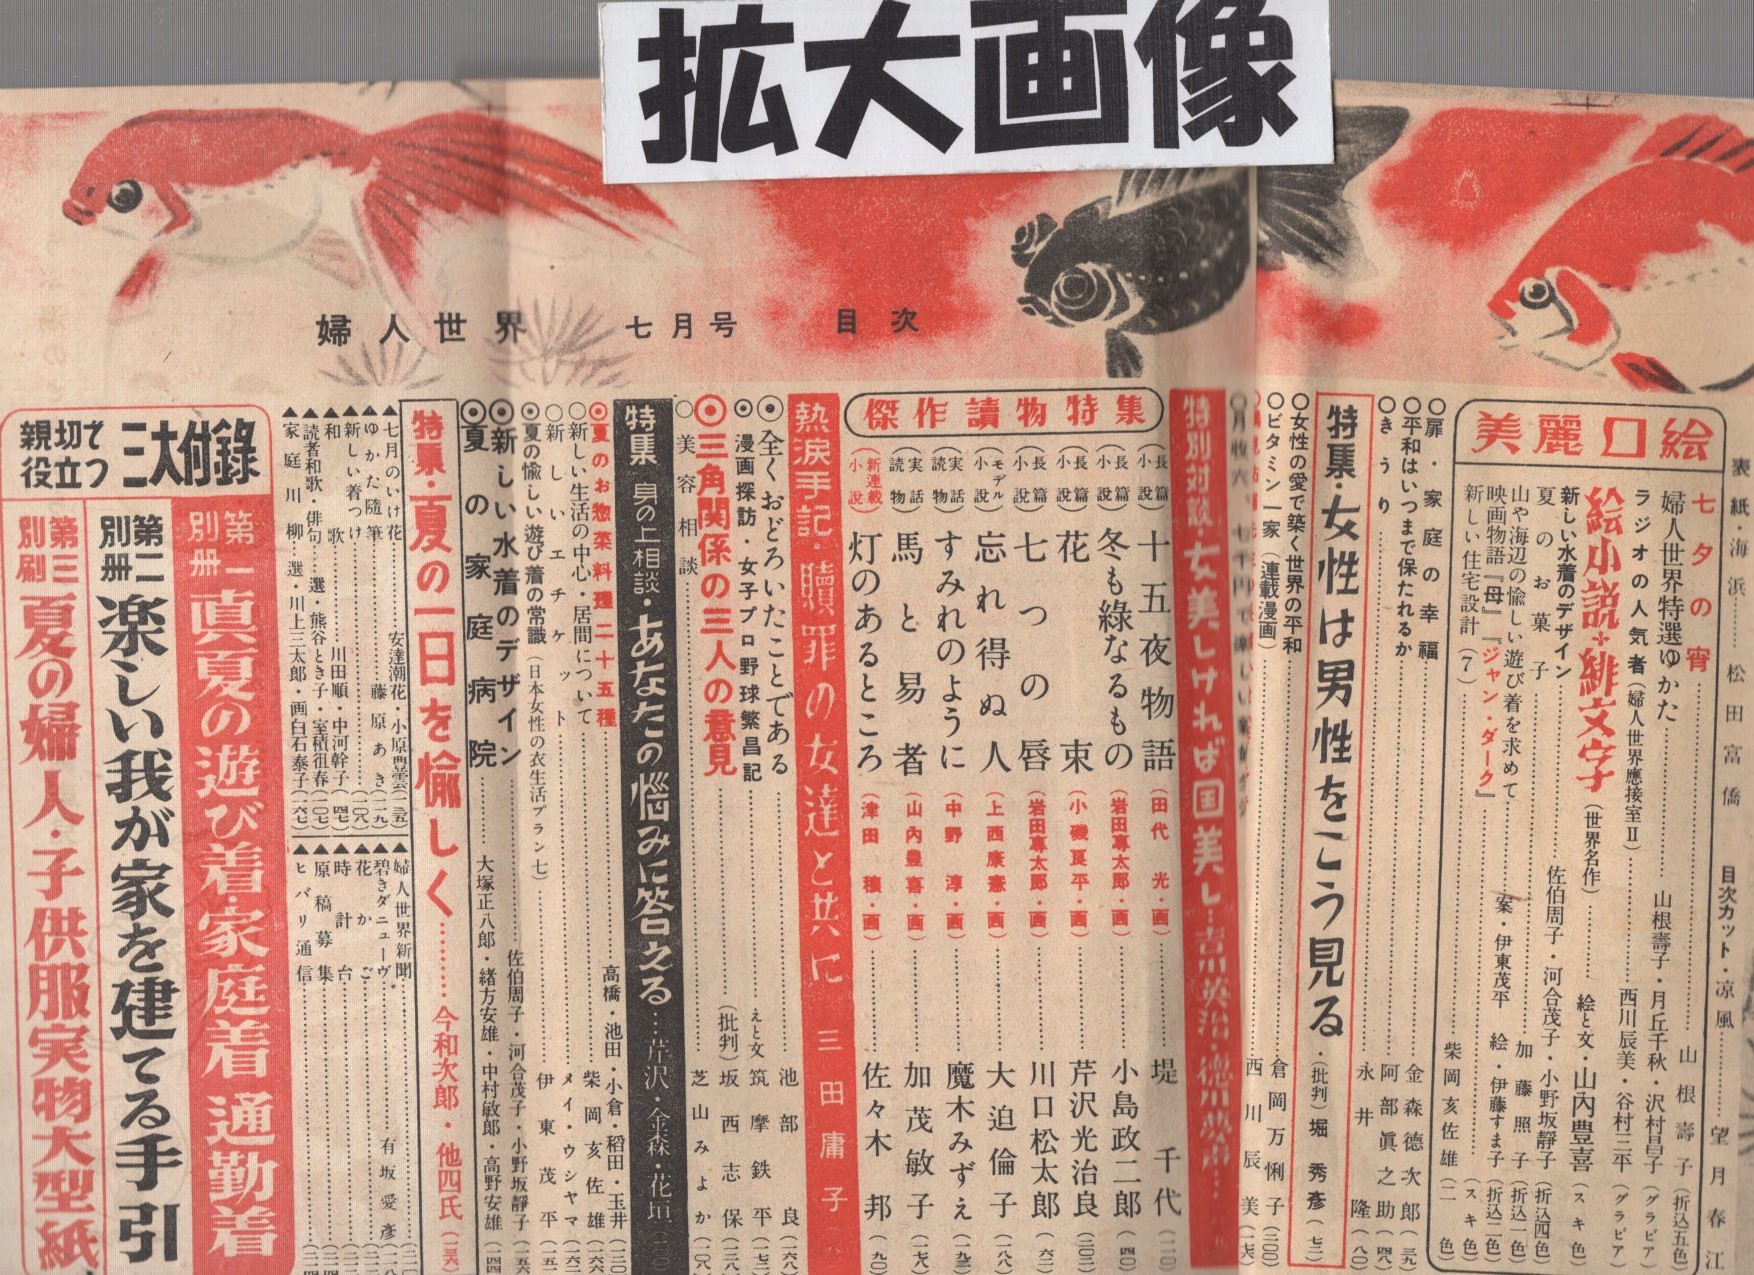 拡大画像
婦人世界 七月号 目次
表紙・海浜……松田富僑
目次カット・凉風……望月春江
美麗口絵
七夕の宵……山根壽子(折込五色)
婦人世界特選ゆかた……山根壽子・月丘千秋・沢村昌子(グラビア)
ラジオの人気者(婦人世界應接室Ⅱ)……西川辰美・谷村三平(グラビア)
絵小説+緋文字(世界名作)……絵と文・山內豊喜(スキ色)
新しい水着のデザイン……佐伯周子・河合茂子・小野坂靜子(折込四色)
夏のお菓子……加藤照子(折込一色)
山や海辺の愉しい遊び着を求めて……案・伊東茂平 絵・伊藤すま子(折込二色)
映画物語『母』『ジャン・ダーク』(スキ色)
新しい住宅設計(7)……柴岡亥佐雄(二色)
○扉・家庭の幸福……金森德次郎(三九)
○平和はいつまで保たれるか……阿部眞之助(四八)
○きうり……永井隆(八〇)
特集・女性は男性をこう見る・(批判)堀秀彥(七二)
○女性の愛で築く世界の平和……倉岡万悧子(三〇〇)
○ビタミン一家(連載漫画)……西川辰美(一六)
特別対談・女美しければ国美し…吉川英治・徳川夢声…
傑作讀物特集
(長篇小説)十五夜物語(田代光・画)……堤千代(二一〇)
(長篇小説)冬も綠なるもの(岩田專太郎・画)……小島政二郎(四〇)
(長篇小説)花束(小磯良平・画)……芹沢光治良(三〇二)
(長篇小説)七つの唇(岩田專太郎・画)……川口松太郎(六〇)
(モデル小説)忘れ得ぬ人(上西康憲・画)……大迫倫子(一八八)
(実話読物)すみれのように(中野淳・画)……魔木みずえ(一九二)
(実話読物)馬と易者(山內豊喜・画)……加茂敏子(一七八)
(新連載小説)灯のあるところ(津田穰・画)……佐々木邦(九〇)
熱涙手記・贖罪の女達と共に 三田庸子
◎全くおどろいたことである……池部良(一六八)
◎漫画探訪・女子プロ野球繁昌記……えと文 筑摩鉄平(一七二)
◎三角関係の三人の意見……(批判)坂西志保(二三八)
○美容相談……芝山みよか(一〇八)
特集 身の上相談・あなたの悩みに答える…芹沢・金森・花垣
◎夏のお惣菜料理二十五種……高橋・池田・小倉・稲田・玉井(二三〇)
○新しい生活の中心・居間について……柴岡亥佐雄(一六六)
○新しいエチケット……メイ・ウシヤマ(一六二)
◎夏の愉しい遊び着の常識(日本女性の衣生活プラン七)……伊東茂平(一五二)
◎新しい水着のデザイン……佐伯周子・河合茂子・小野坂靜子(一五六)
◎夏の家庭病院……大塚正八郎・緒方安雄・中村敏郎・高野安雄(一四四)
特集・夏の一日を愉しく……今和次郎・他四氏(一三六)
▲七月のいけ花……安達潮花・小原豊雲(一三五)
▲ゆかた隨筆……藤原あき(一二九)
▲新しい着つけ……(一〇八)
▲和歌……川田順・中河幹子(一四七)
▲読者和歌・俳句……選・熊谷とき子・室積徂春(一〇七)
▲家庭川柳……選・川上三太郎・画白石泰子(一六七)
▲婦人世界新聞……
▲碧きダニューヴ……有坂愛彥
▲花かご……
▲時計台……
▲原稿募集……
▲ヒバリ通信……
親切で役立つ 三大付錄
第一別册 真夏の遊び着・家庭着 通勤着
第二別册 楽しい我が家を建てる手引
第三別刷 夏の婦人・子供服実物大型紙